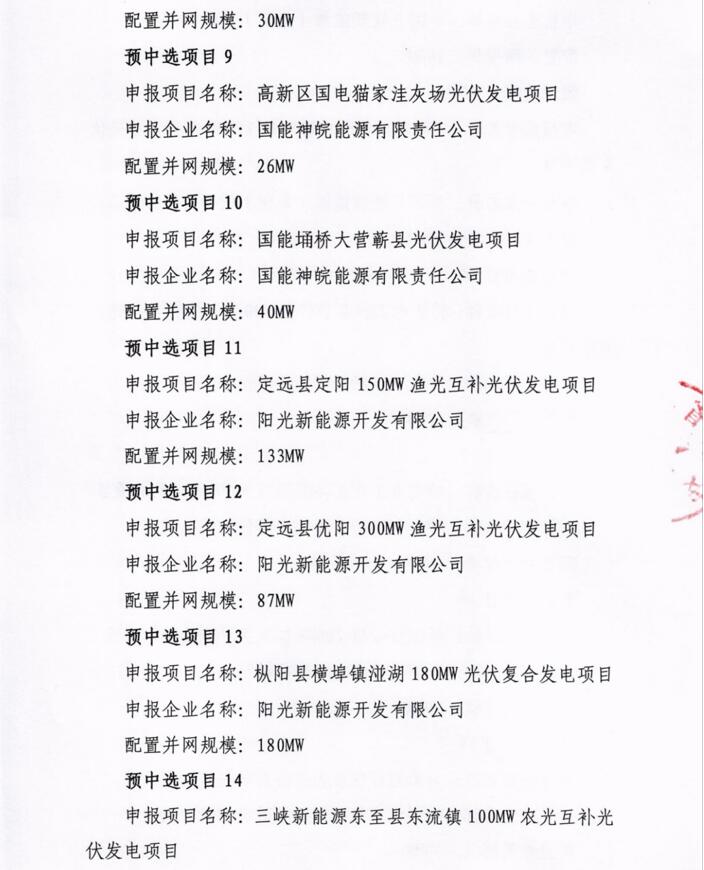 配置并网规模：30MW
预中选项目 9
申报项目名称：高新区国电猫家洼灰场光伏发电项目
申报企业名称：国能神皖能源有限责任公司
配置并网规模：26MW
预中选项目 10
申报项目名称：国能埇桥大营蕲县光伏发电项目
申报企业名称：国能神皖能源有限责任公司
配置并网规模：40MW
预中选项目 11
申报项目名称：定远县定阳 150MW 渔光互补光伏发电项目
申报企业名称：阳光新能源开发有限公司
配置并网规模：133MW
预中选项目 12
申报项目名称：定远县优阳 300MW 渔光互补光伏发电项目
申报企业名称：阳光新能源开发有限公司
配置并网规模：87MW
预中选项目 13
申报项目名称：枞阳县横埠镇湴湖 180MW 光伏复合发电项目
申报企业名称：阳光新能源开发有限公司
配置并网规模：180MW
预中选项目 14
申报项目名称：三峡新能源东至县东流镇 100MW 农光互补光
伏发电项目